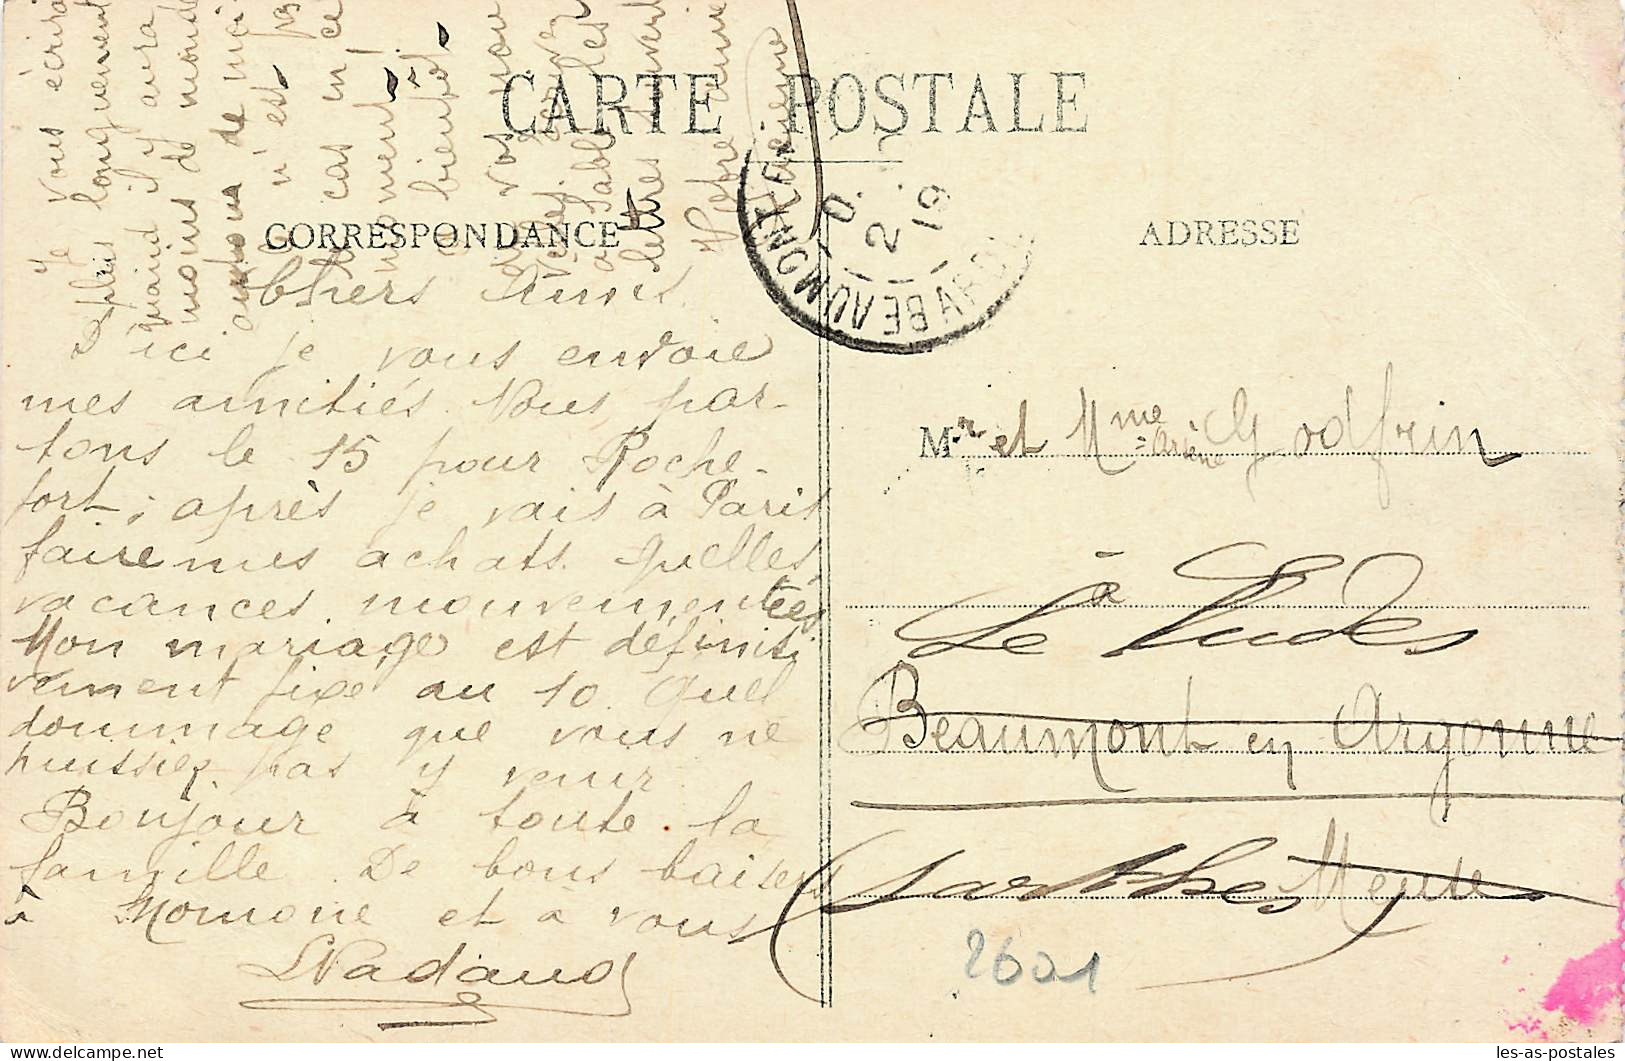 CARTE POSTALE
CORRESPONDANCE
ADRESSE
Chers Amis
D'ici je vous envoie
mes amitiés. Nous par-
tons le 15 pour Roche-
fort ; après je vais à Paris
faire mes achats. Quelles
vacances mouvementées
Mon mariage est définiti
vement fixé au 10. Quel
dommage que vous ne
puissiez pas y venir
Bonjour à toute la
famille. De bons baisers
à Momone et à vous
LNadaud
Je vous écrirai
plus longuement
quand il y aura
moins de monde
autour de moi
n'est pas
cas en ce
moment
bientôt.
vous
lettres souvent
Votre amie
BEAUMONT
2
19
Mr et Mme Arsène Godfrin
à
Le Ludes
Beaumont en Argonne
Sarthe Meuse
2601
les-as-postales